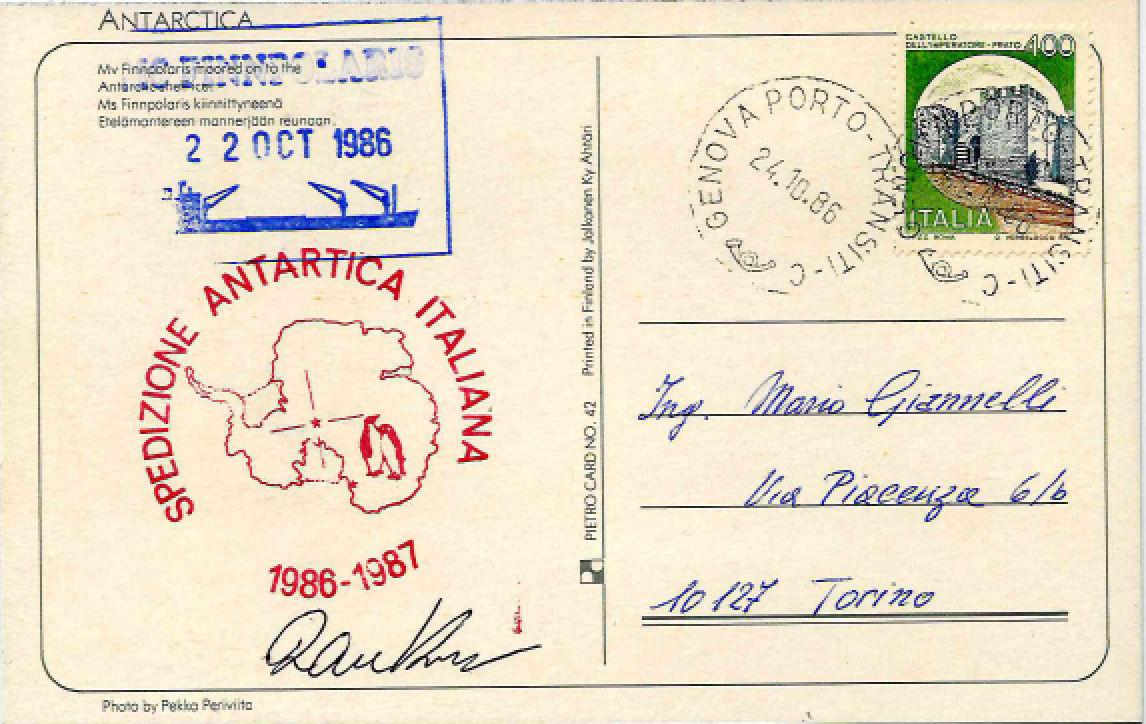 ANTARCTICA
Mv Finnpolaris moored on to the
Antarctic shelf ice.
Ms Finnpolaris kiinnittyneenä
Etelämantereen mannerjään reunaan.
MS FINNPOLARIS
22 OCT 1986
SPEDIZIONE ANTARTICA ITALIANA
1986-1987
Photo by Pekka Periviita
PIETRO CARD NO. 42 Printed in Finland by Jalkanen Ky Ähtäri
GENOVA PORTO-TRANSITI-C
24.10.86
CASTELLO
DELL'IMPERATORE-PRATO 400
ITALIA
TRANSITI-C
Ing. Mario Giannelli
Via Piacenza 6/b
10127 Torino